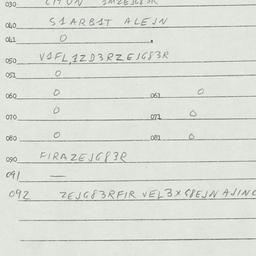 030
040 S1ARB1T ALEJN
041 0
050 V1FL,1ZD3RZEJG83R
051 0
060 0 061 0
070 0 071 0
080 0 081 0
090 FIRAZEJG83R
091 —
092 ZEJG83RFIR